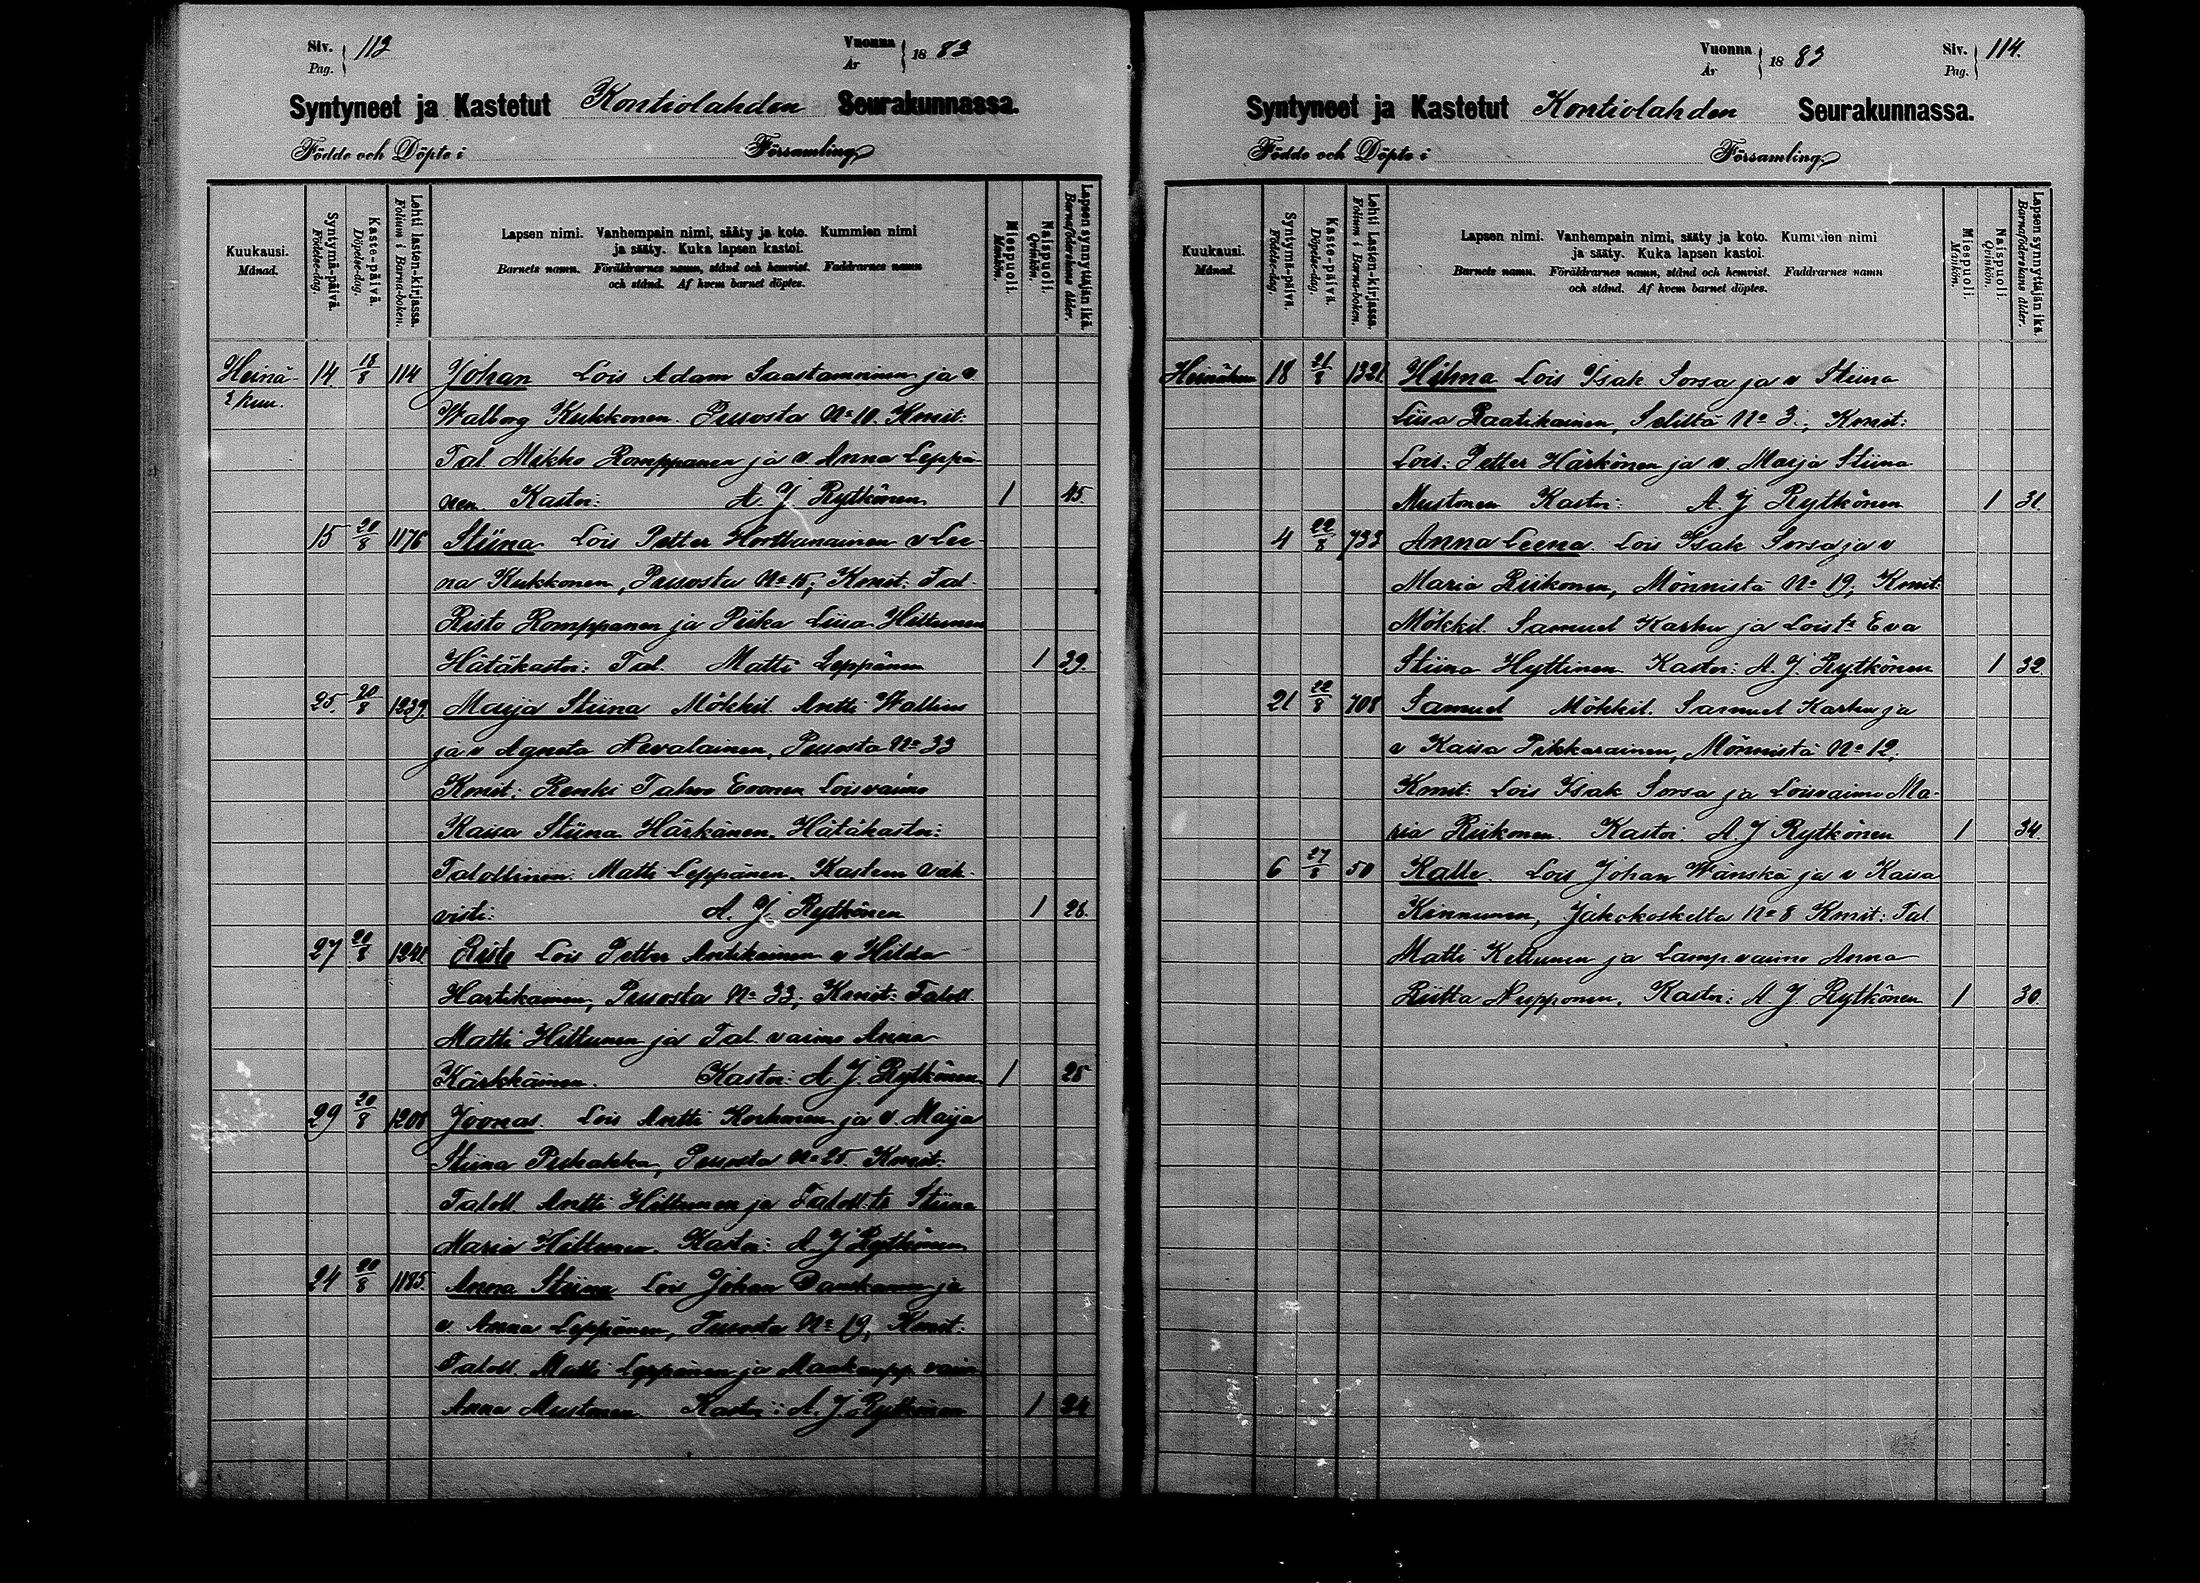 Siv. 113
Pag.
Vuonna 1883
År
Syntyneet ja Kastetut Kontiolahden Seurakunnassa.
Födde och Döpte i Församling
Kuukausi.
Månad.
Syntymä-päivä.
Födelse-dag.
Kaste-päivä.
Döpelse-dag.
Lehti lasten-kirjassa.
Folium i Barna-boken.
Lapsen nimi. Vanhempain nimi, sääty ja koto. Kummien nimi
ja sääty. Kuka lapsen kastoi.
Barnets namn. Föräldrarnes namn, stånd och hemvist. Faddrarnes namn
och stånd. Af hvem barnet döptes.
Miespuoli.
Mankön.
Naispuoli.
Qvinkön.
Lapsen synnyttäjän ikä.
Barnaföderskans ålder.
Heinä- 14 18/8 114 Johan Lois Adam Saastamoinen ja v.
kuu. Walborg Kukkonen. Puosta No 10. Kmit:
Tal. Mikko Romppanen ja v. Anna Leppä-
nen. Kastoi: A. J Rytkönen 1 45.
15 20/8 1176 Stiina Lois Petter v Lee-
na Kukkonen, Puosta No 15; Kmit: Tal.
Risto Romppanen ja Piika Liisa Hiltunen
Hätäkastoi: Tal. Matti Leppänen 1 39.
25. 20/8 1239. Maija Stiina Mökkil. Antti Wallius
ja v Agneta Nevalainen, Puosta No 33
Kmit: Renki Tahvo Eronen Loisvaimo
Kaisa Stiina Härkänen. Hätäkastoi:
Talollinen Matti Leppänen. Kasteen vah-
visti: A. J. Rytkönen 1 28.
27 20/8 1241. Risto Lois Petter Antikainen v Hilda
Hartikainen, Puosta No 33; Kmit: Taloll
Matti Hiltunen ja Tal. vaimo Anna
Kärkkäinen. Kastoi: A. J. Rytkönen 1 25
29 20/8 1208 Joonas. Lois Antti Korhonen ja v. Maija
Stiina Puhakka, Puosta No 25. Kmit:
Taloll Antti Hiltunen ja Taloll:ts Stiina
Maria Hiltunen. Kastoi: A. J Rytkönen
24 20/8 1185. Anna Stiina Lois Johan ja
v. Anna Leppänen, Puosta No 19, Kmit:
Taloll. Matti Leppänen ja vaim
Anna Mustonen Kastoi: A. J. Rytkönen 1 34
Vuonna 1883
År
Siv. 114.
Pag.
Syntyneet ja Kastetut Kontiolahden Seurakunnassa.
Födde och Döpte i Församling
Kuukausi.
Månad.
Syntymä-päivä.
Födelse-dag.
Kaste-päivä.
Döpelse-dag.
Lehti Lasten-kirjassa.
Folium i Barna-boken.
Lapsen nimi. Vanhempain nimi, sääty ja koto. Kummien nimi
ja sääty. Kuka lapsen kastoi.
Barnets namn. Föräldrarnes namn, stånd och hemvist. Faddrarnes namn
och stånd. Af hvem barnet döptes.
Miespuoli.
Mankön.
Naispuoli.
Qvinkön.
Lapsen synnyttäjän ikä.
Barnaföderskans ålder.
Heinäkuu 18 21/8 1321. Hilma Lois Isak Sorsa ja v Stiina
Liisa Raatikainen, Seliltä No 3; Kmit:
Lois: Petter Härkönen ja v. Maija Stiina
Mustonen Kastoi: A. J Rytkönen 1 31.
4 22/8 733 Anna Leena. Lois Isak Sorsa ja v
Maria Riikonen, Mönnistä No 19; Kmit:
Mökkil. Samuel Karhu ja Loists Eva
Stiina Hyttinen Kastoi: A. J. Rytkönen 1 32.
21 22/8 708 Samuel Mökkil. Samuel Karhu ja
v Kaisa Pikkarainen, Mönnistä No 12;
Kmit: Lois Isak Sorsa ja Loisvaimo Ma-
ria Riikonen. Kastoi: A J Rytkönen 1 34.
6 27/8 50 Kalle. Lois Johan Wänskä ja v Kaisa
Kinnunen, Jakokoskelta No 8 Kmit: Tal
Matti Kettunen ja Lamp vaimo Anna
Riitta Nupponen. Kastoi: A J Rytkönen 1 30.